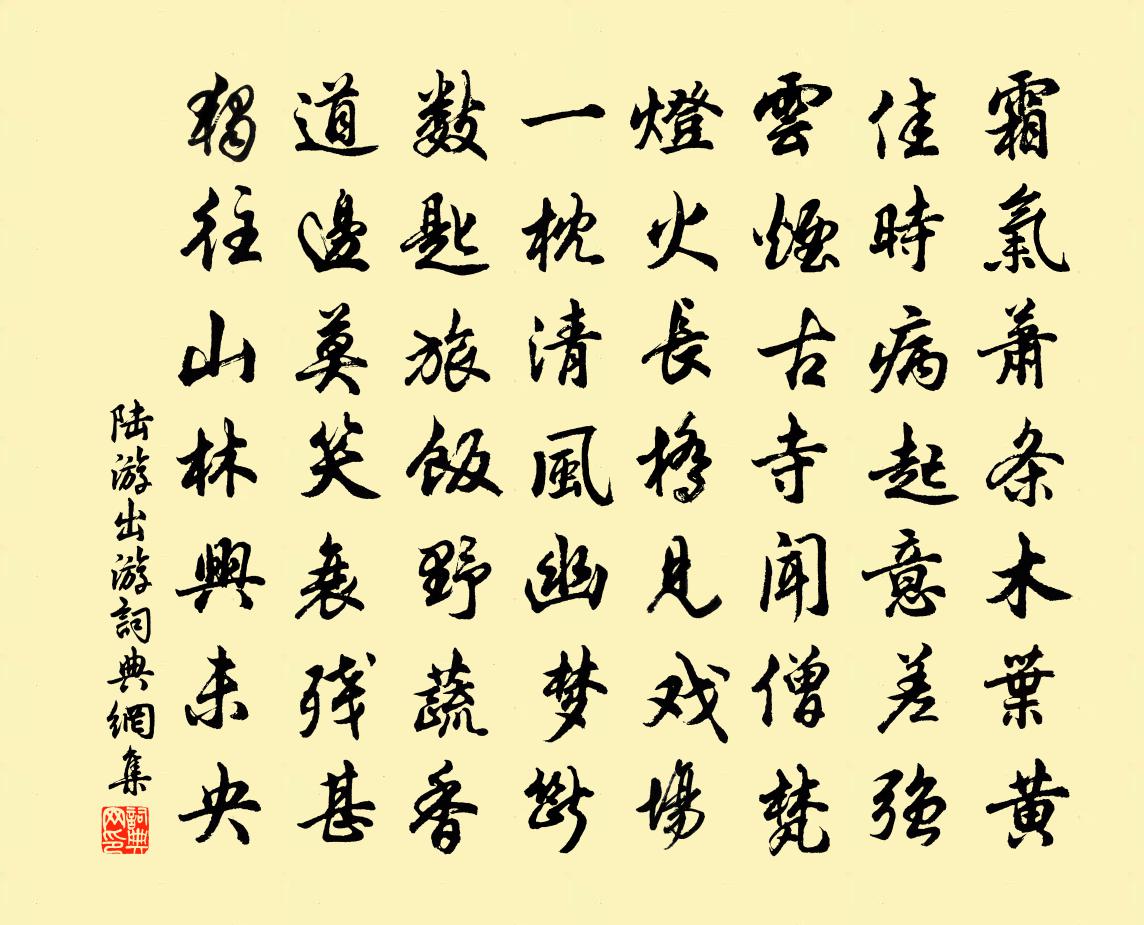 霜氣蕭条木葉黃
佳時病起意差强
雲煙古寺聞僧梵
燈火長橋見戏場
一枕清風幽梦斷
數匙旅飯野蔬香
道邊莫笑衰残甚
獨往山林興未央
陆游出游詞典網集
詞典网印